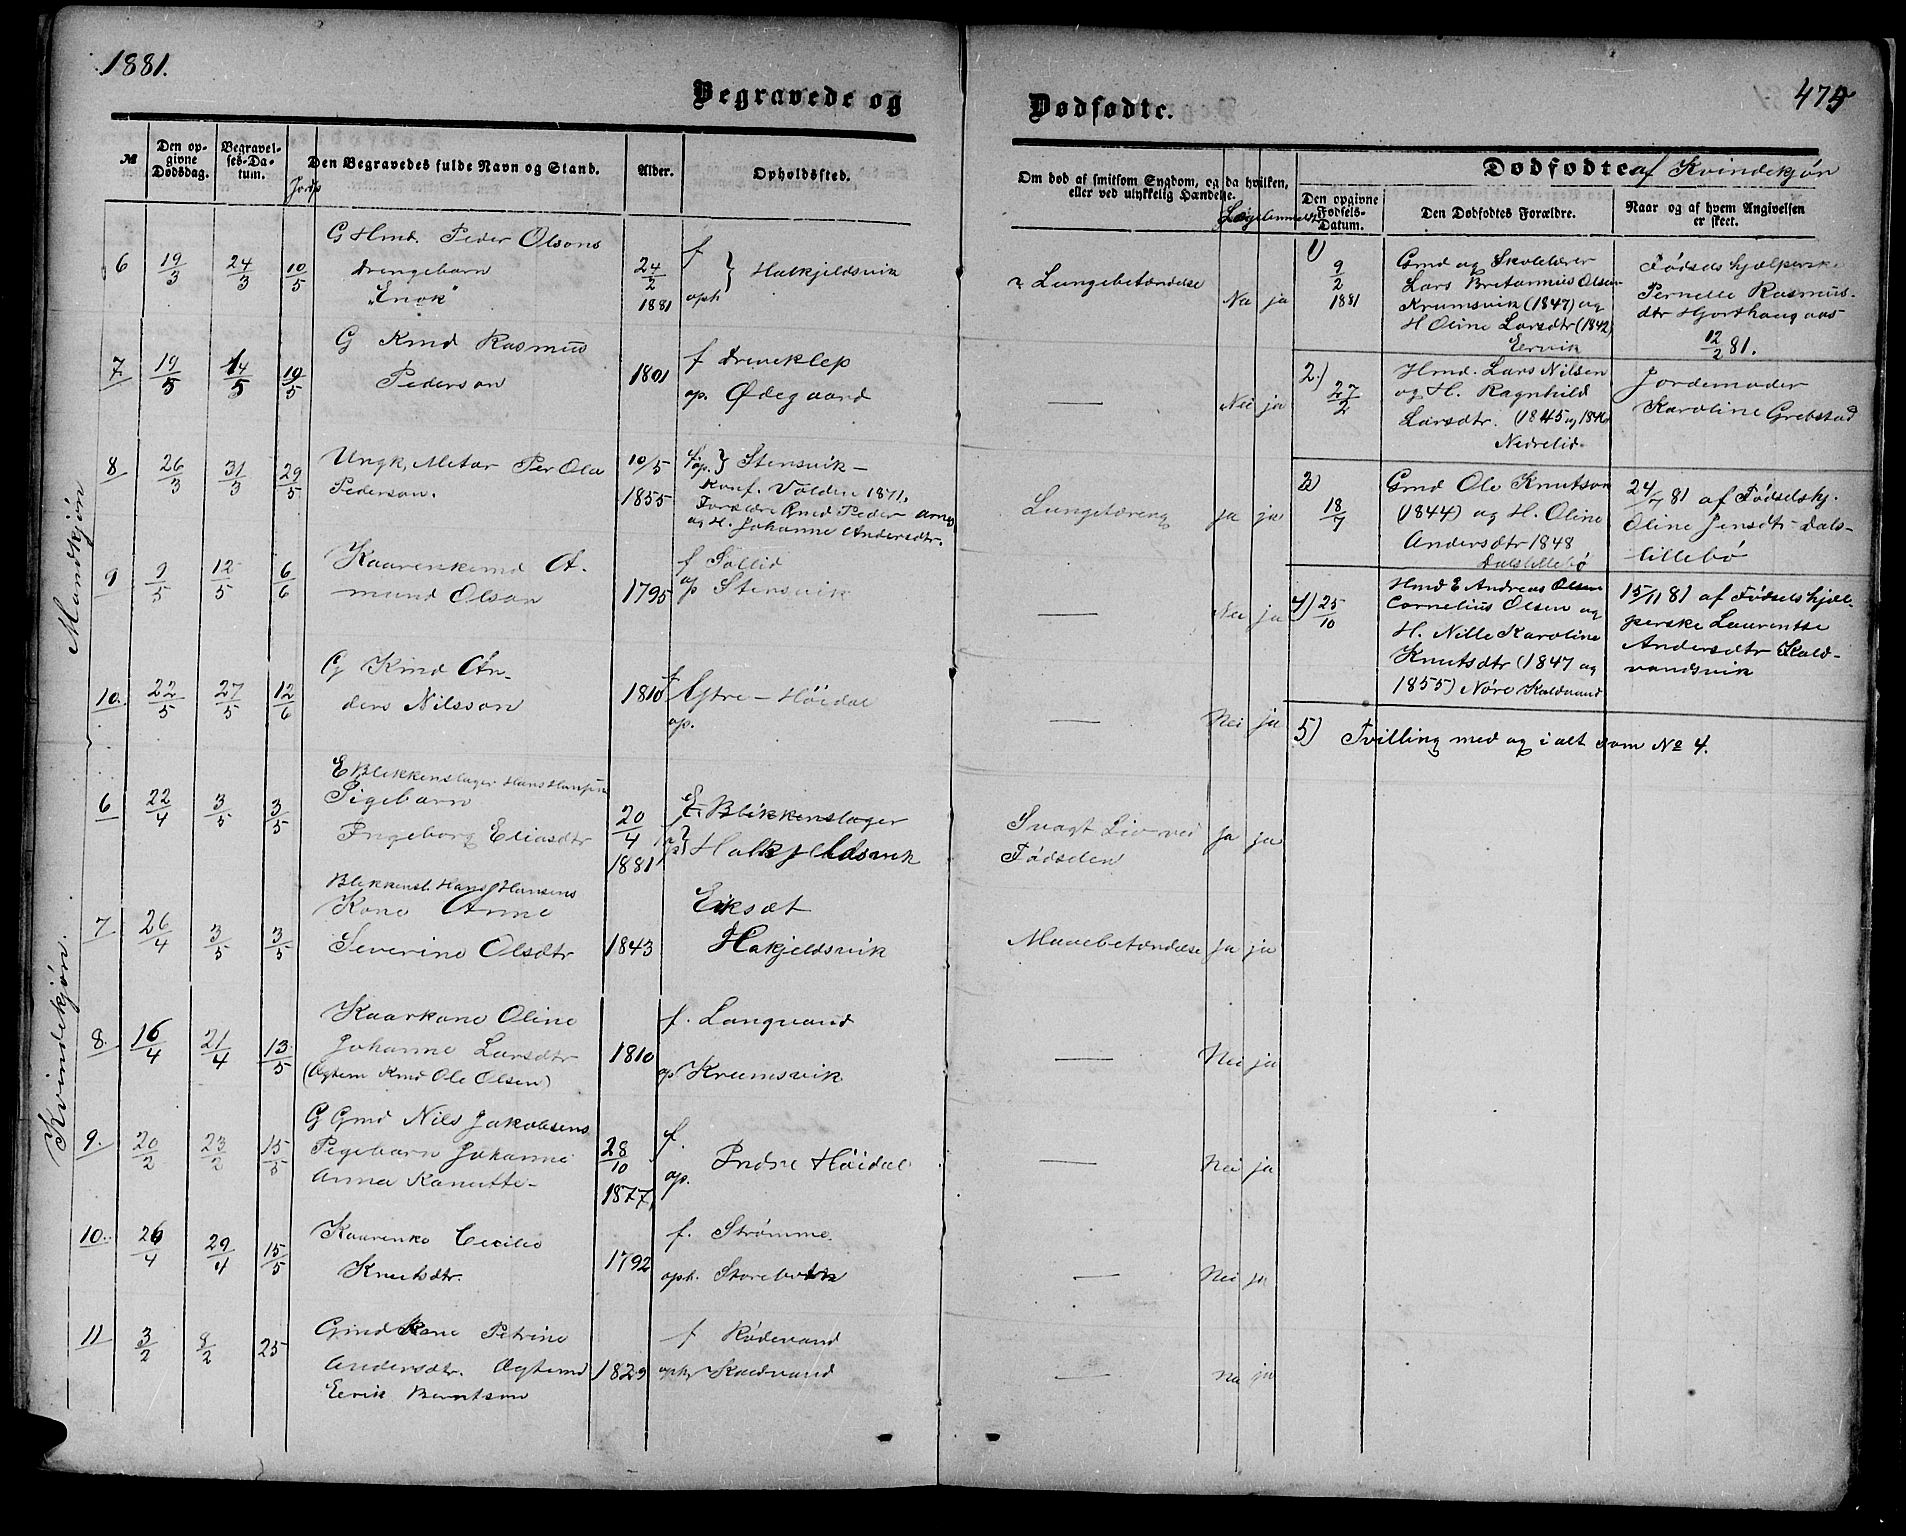 1881.
475
Begravede og
Dødfødte.
№
Den opgivne Dødsdag.
Begravelses-Datum.
Jordp
Den Begravedes fulde Navn og Stand.
Alder.
Opholdssted.
Om død af smitsom Sygdom, og da hvilken,
eller ved ulykkelig Hændelse.
Dødfødte af Kvindekjøn
Den opgivne Fødsels-Datum.
Den Dødfødtes Forældre.
Naar og af hvem Angivelsen er skeet.
Mandkjøn
6 19/3 24/3 10/5
G Hmd. Peder Olsons
Drengebarn
"Enok"
24/2 1881
f
oph } Halkjeldsvik
Lungebetændelse
Nei ja
7. 19/5 14/5 19/5
G Kmd Rasmus
Pederson
1801
f Driveklep
op. Ødegaard
— Nei ja
8 26/3 31/3 29/5
Ungk, Per Ola
Pederson.
10/5 1855
f op. } Stensvik —
Konf. Volden 1871.
Forældre Gmd Peder
og H. Johanne Andersdtr.
Lungetæring
ja ja
9 9/5 12/5 6/6
Kaarenkemd A-
mund Olson
1795
f Sollid
op Stensvik
— Nei ja
10. 22/5 27/5 12/6
G Kmd An-
ders Nilsson
1810
f
op. Ytre-Höidal
— Nei ja
Kvindekjøn.
6 22/4 3/5 3/5
E Blikkenslager Hans Hansens
Pigebarn
Ingeborg Eliasdtr
20/4 1881
E Blikkenslager
Halkjeldsvik
Svagt Liv ved
Fødselen
ja ja
7 26/4 3/5 3/5
Blikkensl. Hans Hansens
Kone Anne
Severine Olsdtr
1843
Eiksæt
Hakjeldsvik
Mavebetændelse
ja ja
8. 16/4 21/4 13/5
Kaarkone Oline
Johanne Larsdtr
(Ægtem Kmd Ole Olsen)
1810
f. Langvand
op Krumsvik
— Nei ja
9. 20/2 23/2 15/5
G Gmd Nils Jakobsens
Pigebarn Johanne
Anna Kanutte-
28/10 1877,
f.
op. Indre Höidal
— Nei ja
10. 26/4 29/4 15/5
Kaarenke Cecilie
Knutsdtr.
1792
f. Strømme.
oph. Storebotn
— Nei ja
11 3/2 9/2 25
Gmd Kone Petrine
Andersdtr. Ægtemd
Eerik Berntson
1829
f Rödevand
oph Kaldvand
— Nei ja
1)
9/2 1881
Gmd og Skolelærer
Lars Bretanius Olsen
Krumsvik (1847) og
H Oline Larsdtr (1842)
Eervik
Fødselshjælperske
Pernelle Rasmus-
dtr Hjorthaug aas-
12/2 81.
2.)
27/2
Hmd. Lars Nilsen
og H. Ragnhild
Larsdtr. (1845 og 1846
Nedrelid
Jordemoder
Karoline Grebstad
3)
18/7
Gmd Ole Knutson
(1844) og H. Oline
Andersdtr 1848
Dalslillebø
24/7 81 af Fødselshj.
Oline Jensdtr Dals-
lillebø
4) 25/10
Hmd E Andreas Olsen
Cornelius Olsen og
H. Nille Karoline
Knutsdtr (1847 og
1855) Nore Kaldvand
15/11 81 af Fødselshjæl-
perske Laurentse
Andersdtr Kald-
vandsvik
5) Tvilling med og i alt som № 4.